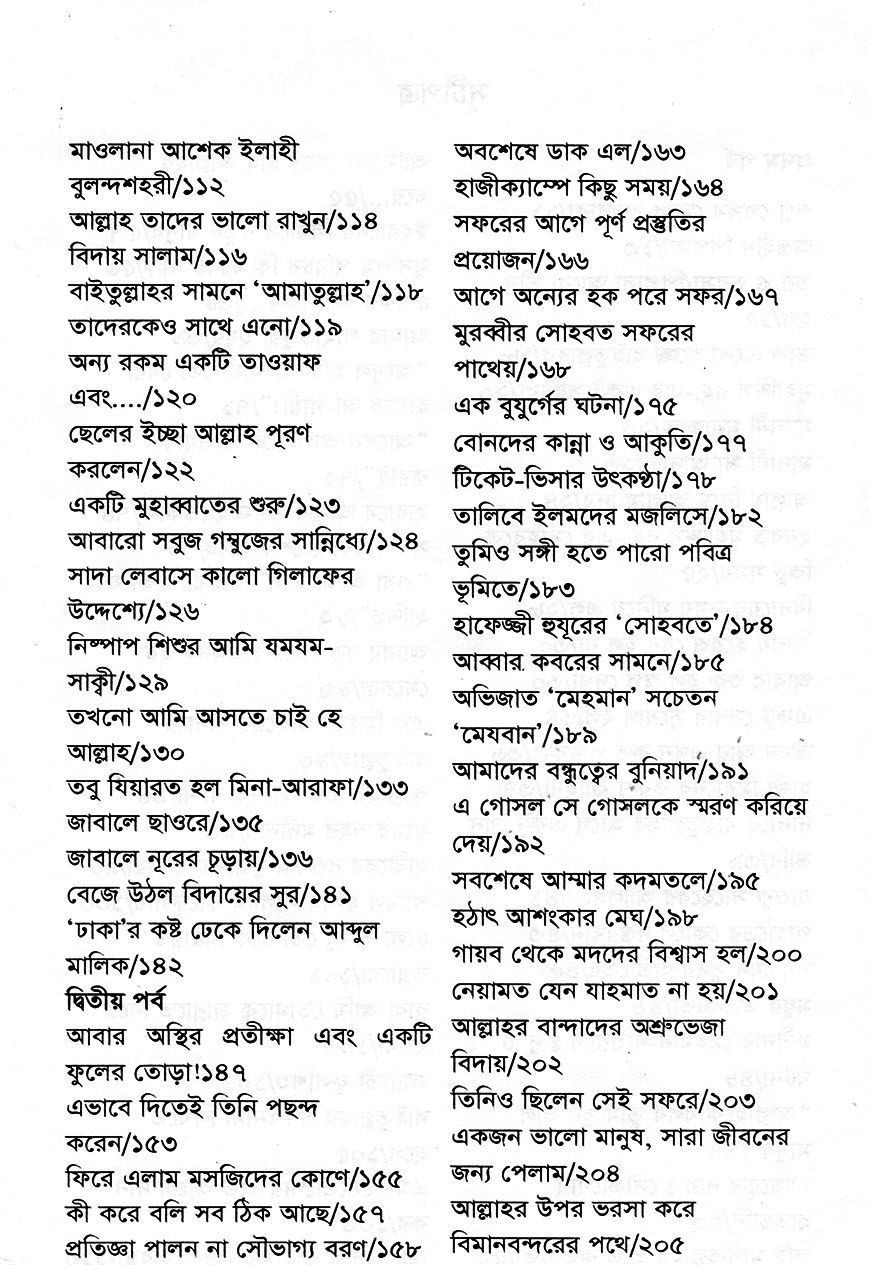 মাওলানা আশেক ইলাহী
বুলন্দশহরী/১১২
আল্লাহ তাদের ভালো রাখুন/১১৪
বিদায় সালাম/১১৬
বাইতুল্লাহর সামনে ‘আমাতুল্লাহ’/১১৮
তাদেরকেও সাথে এনো/১১৯
অন্য রকম একটি তাওয়াফ
এবং..../১২০
ছেলের ইচ্ছা আল্লাহ পূরণ
করলেন/১২২
একটি মুহাব্বাতের শুরু/১২৩
আবারো সবুজ গম্বুজের সান্নিধ্যে/১২৪
সাদা লেবাসে কালো গিলাফের
উদ্দেশ্যে/১২৬
নিষ্পাপ শিশুর আমি যমযম-
সাক্বী/১২৯
তখনো আমি আসতে চাই হে
আল্লাহ/১৩০
তবু যিয়ারত হল মিনা-আরাফা/১৩৩
জাবালে ছাওরে/১৩৫
জাবালে নূরের চূড়ায়/১৩৬
বেজে উঠল বিদায়ের সুর/১৪১
‘ঢাকা’র কষ্ট ঢেকে দিলেন আব্দুল
মালিক/১৪২
দ্বিতীয় পর্ব
আবার অস্থির প্রতীক্ষা এবং একটি
ফুলের তোড়া!১৪৭
এভাবে দিতেই তিনি পছন্দ
করেন/১৫৩
ফিরে এলাম মসজিদের কোণে/১৫৫
কী করে বলি সব ঠিক আছে/১৫৭
প্রতিজ্ঞা পালন না সৌভাগ্য বরণ/১৫৮
অবশেষে ডাক এল/১৬৩
হাজীক্যাম্পে কিছু সময়/১৬৪
সফরের আগে পূর্ণ প্রস্তুতির
প্রয়োজন/১৬৬
আগে অন্যের হক পরে সফর/১৬৭
মুরব্বীর সোহবত সফরের
পাথেয়/১৬৮
এক বুযুর্গের ঘটনা/১৭৫
বোনদের কান্না ও আকুতি/১৭৭
টিকেট-ভিসার উৎকণ্ঠা/১৭৮
তালিবে ইলমদের মজলিসে/১৮২
তুমিও সঙ্গী হতে পারো পবিত্র
ভূমিতে/১৮৩
হাফেজ্জী হুযূরের ‘সোহবতে’/১৮৪
আব্বার কবরের সামনে/১৮৫
অভিজাত ‘মেহমান’ সচেতন
‘মেযবান’/১৮৯
আমাদের বন্ধুত্বের বুনিয়াদ/১৯১
এ গোসল সে গোসলকে স্মরণ করিয়ে
দেয়/১৯২
সবশেষে আম্মার কদমতলে/১৯৫
হঠাৎ আশংকার মেঘ/১৯৮
গায়ব থেকে মদদের বিশ্বাস হল/২০০
নেয়ামত যেন যাহমাত না হয়/২০১
আল্লাহর বান্দাদের অশ্রুভেজা
বিদায়/২০২
তিনিও ছিলেন সেই সফরে/২০৩
একজন ভালো মানুষ, সারা জীবনের
জন্য পেলাম/২০৪
আল্লাহর উপর ভরসা করে
বিমানবন্দরের পথে/২০৫